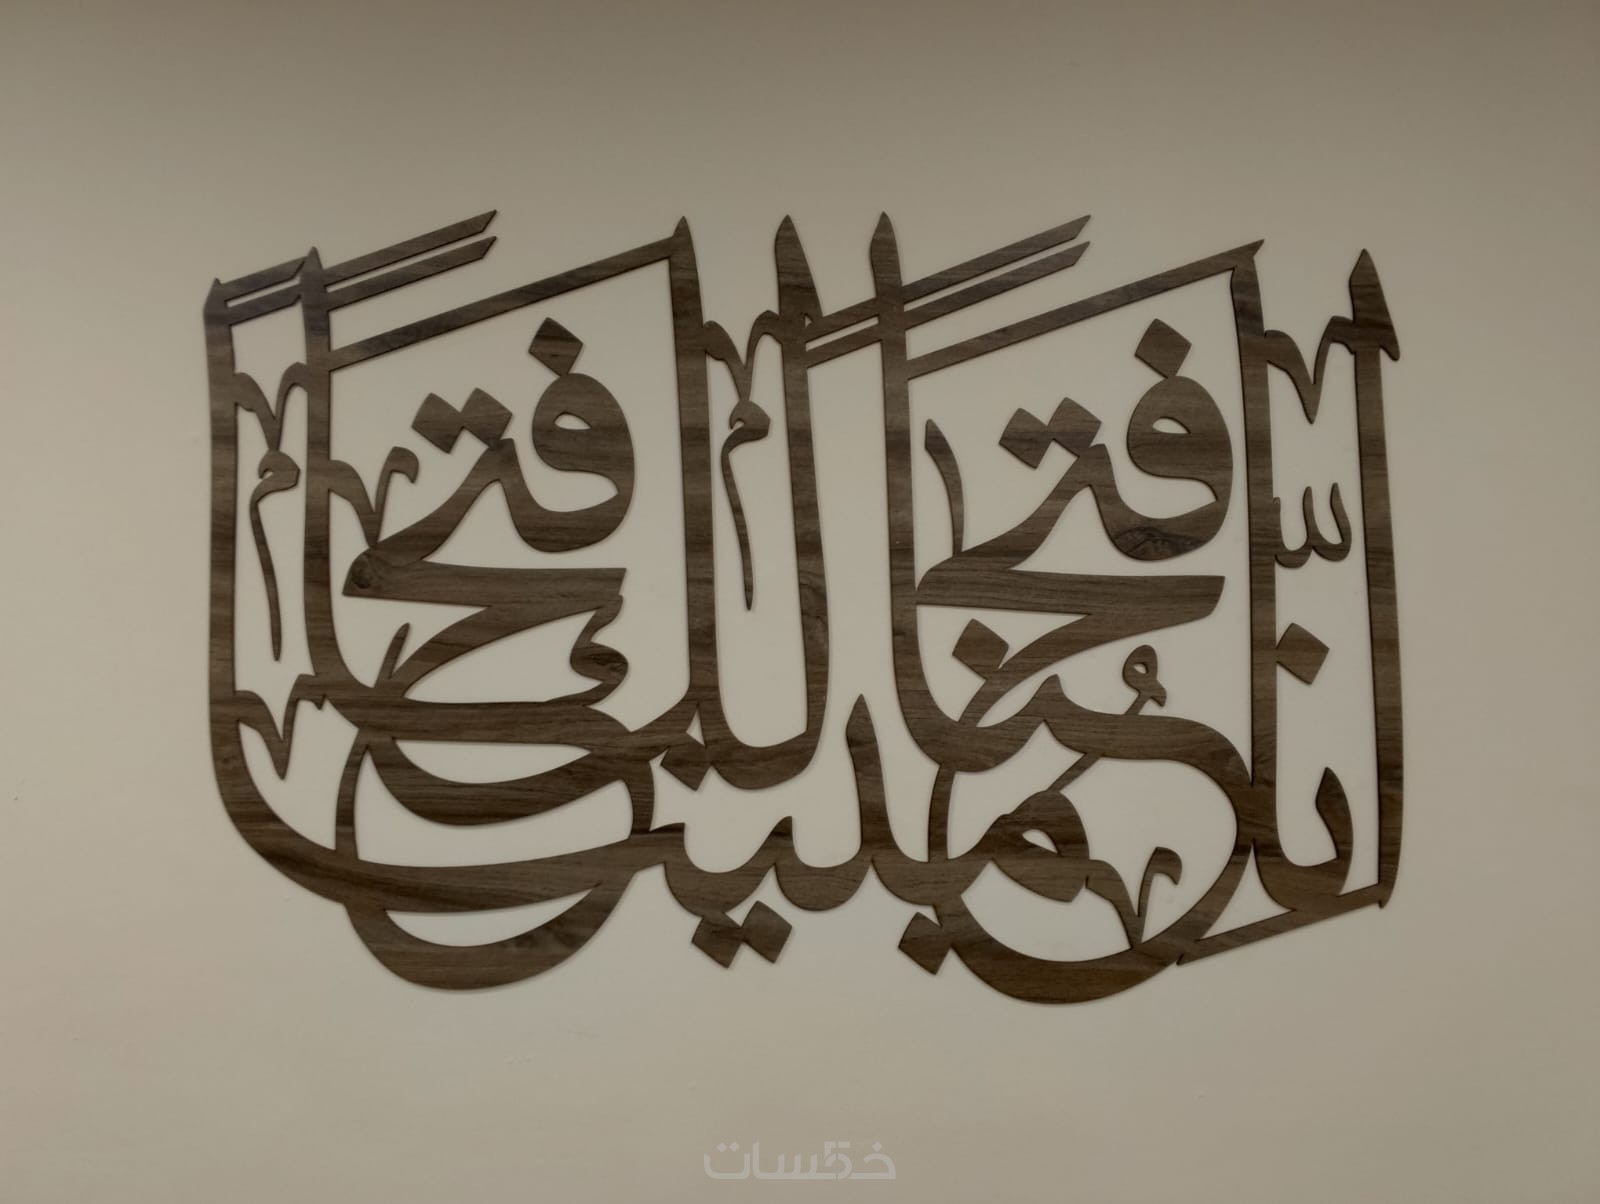 إنّا فتحنا لك فتحًا مُبينًا
خمسات